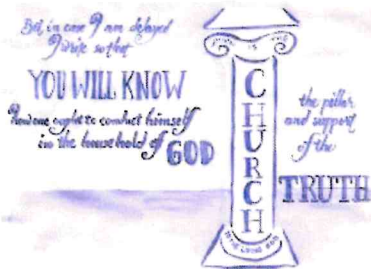 But in case I am delayed
I write so that
YOU WILL KNOW
how one ought to conduct himself
in the household of GOD
CHURCH
the pillar
and support
of the
TRUTH